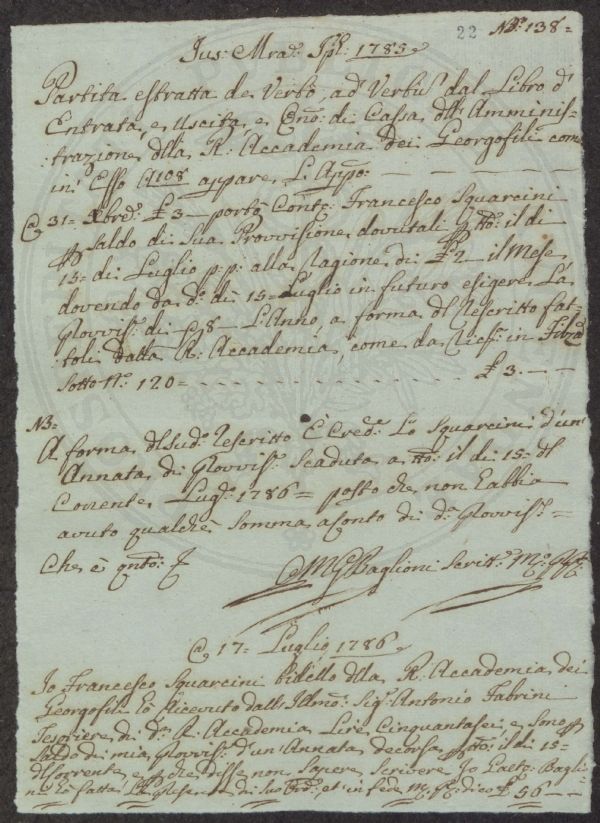 22 N.º 138=
Jus: Mrad: Spl: 1785
Partita estratta de Verbo, ad Verbũ dal Libro d'
Entrata, e Uscita, e Qño: di Cassa dll: Amminis=
:trazione dlla R: Accademia dei Georgofili come
in Esso A 108 appare, L: Appõ: — — — — —
@ 31= Xbre: £ 3 — portò Contˢ: Francesco Squarcini
p saldo di Sua Provvisione dovutali ptto: il dì
15= di Luglio p:p: alla ragione di £ 2 il Mese,
dovendo da d.º dì 15= Luglio in futuro esigere La
Provvis: di L'Anno, a forma dl Rescritto fat=
:toli dalla R: Accademia, come da in Filza
Sotto N.º 120= - - - - - - - - - - £ 3. — —
NB=
A forma dl Sud.º Rescritto È Cred.º Lo Squarcini d'un'
Annata di Provvis: Scaduta a tto: il dì 15= dl
Corrente Lugº: 1786= posto che non l'abbia
avuto qualche Somma aconto di d.ª Provvis: =
Che è qnto: &
Baglioni Scritt.º
@ 17= Luglio 1786
Io Francesco Squarcini bidello dlla R: Accademia dei
Georgofili ho ricevuto dall: Illmo: Sigˢ: Antonio Fabrini
Tesoriere di d.ª R: Accademia Lire Cinquantasei e Sono p
Saldo di mia Provvis: d'un'Annata decorsa ptto: il dì 15=
dl Corrente, e p che disse non Sapere Scrivere Io Gaetº: Baglio
ni ho fatta La presente di Suo Ord.º: et in fede M: Pp: dico £ 56 — —